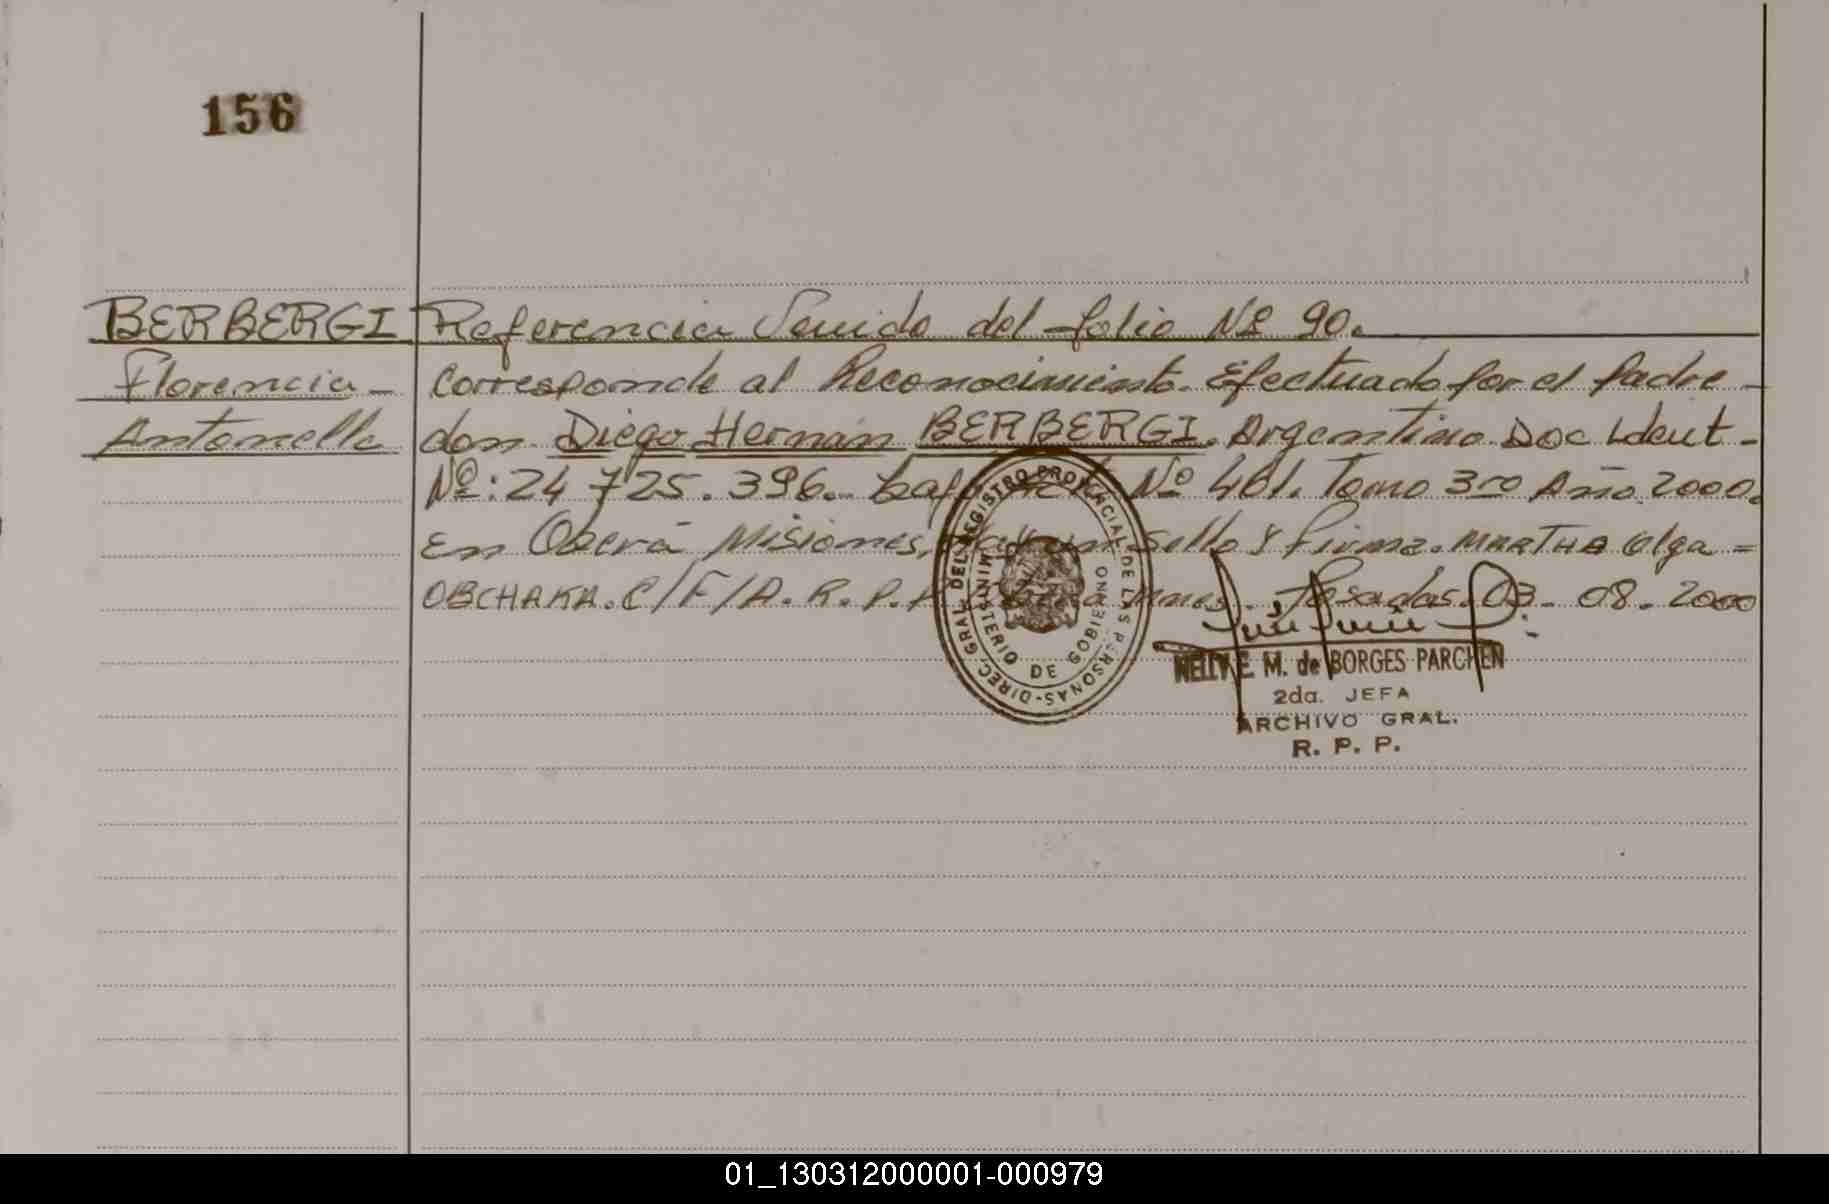 156
BERBERGI Referencia Venida del folio Nº 90.
Florencia - Corresponde al Reconocimiento. Efectuado por el Padre -
Antonella don Diego Hernán BERBERGI. Argentino Doc Ident -
Nº: 24 725.396. bajo Nº 401. Tomo 3ro Año 2000.
En Oberá Misiones, Sello y firma. MARTHA Olga =
OBCHAKA. C/F/A. R. P. P. Posadas. 03. 08. 2000
DIREC. GRAL. DEL REGISTRO PROVINCIAL DE LAS PERSONAS
MINISTERIO DE GOBIERNO
NELLY E. M. de BORGES PARCHEN
2da. JEFA
ARCHIVO GRAL.
R. P. P.
01_130312000001-000979